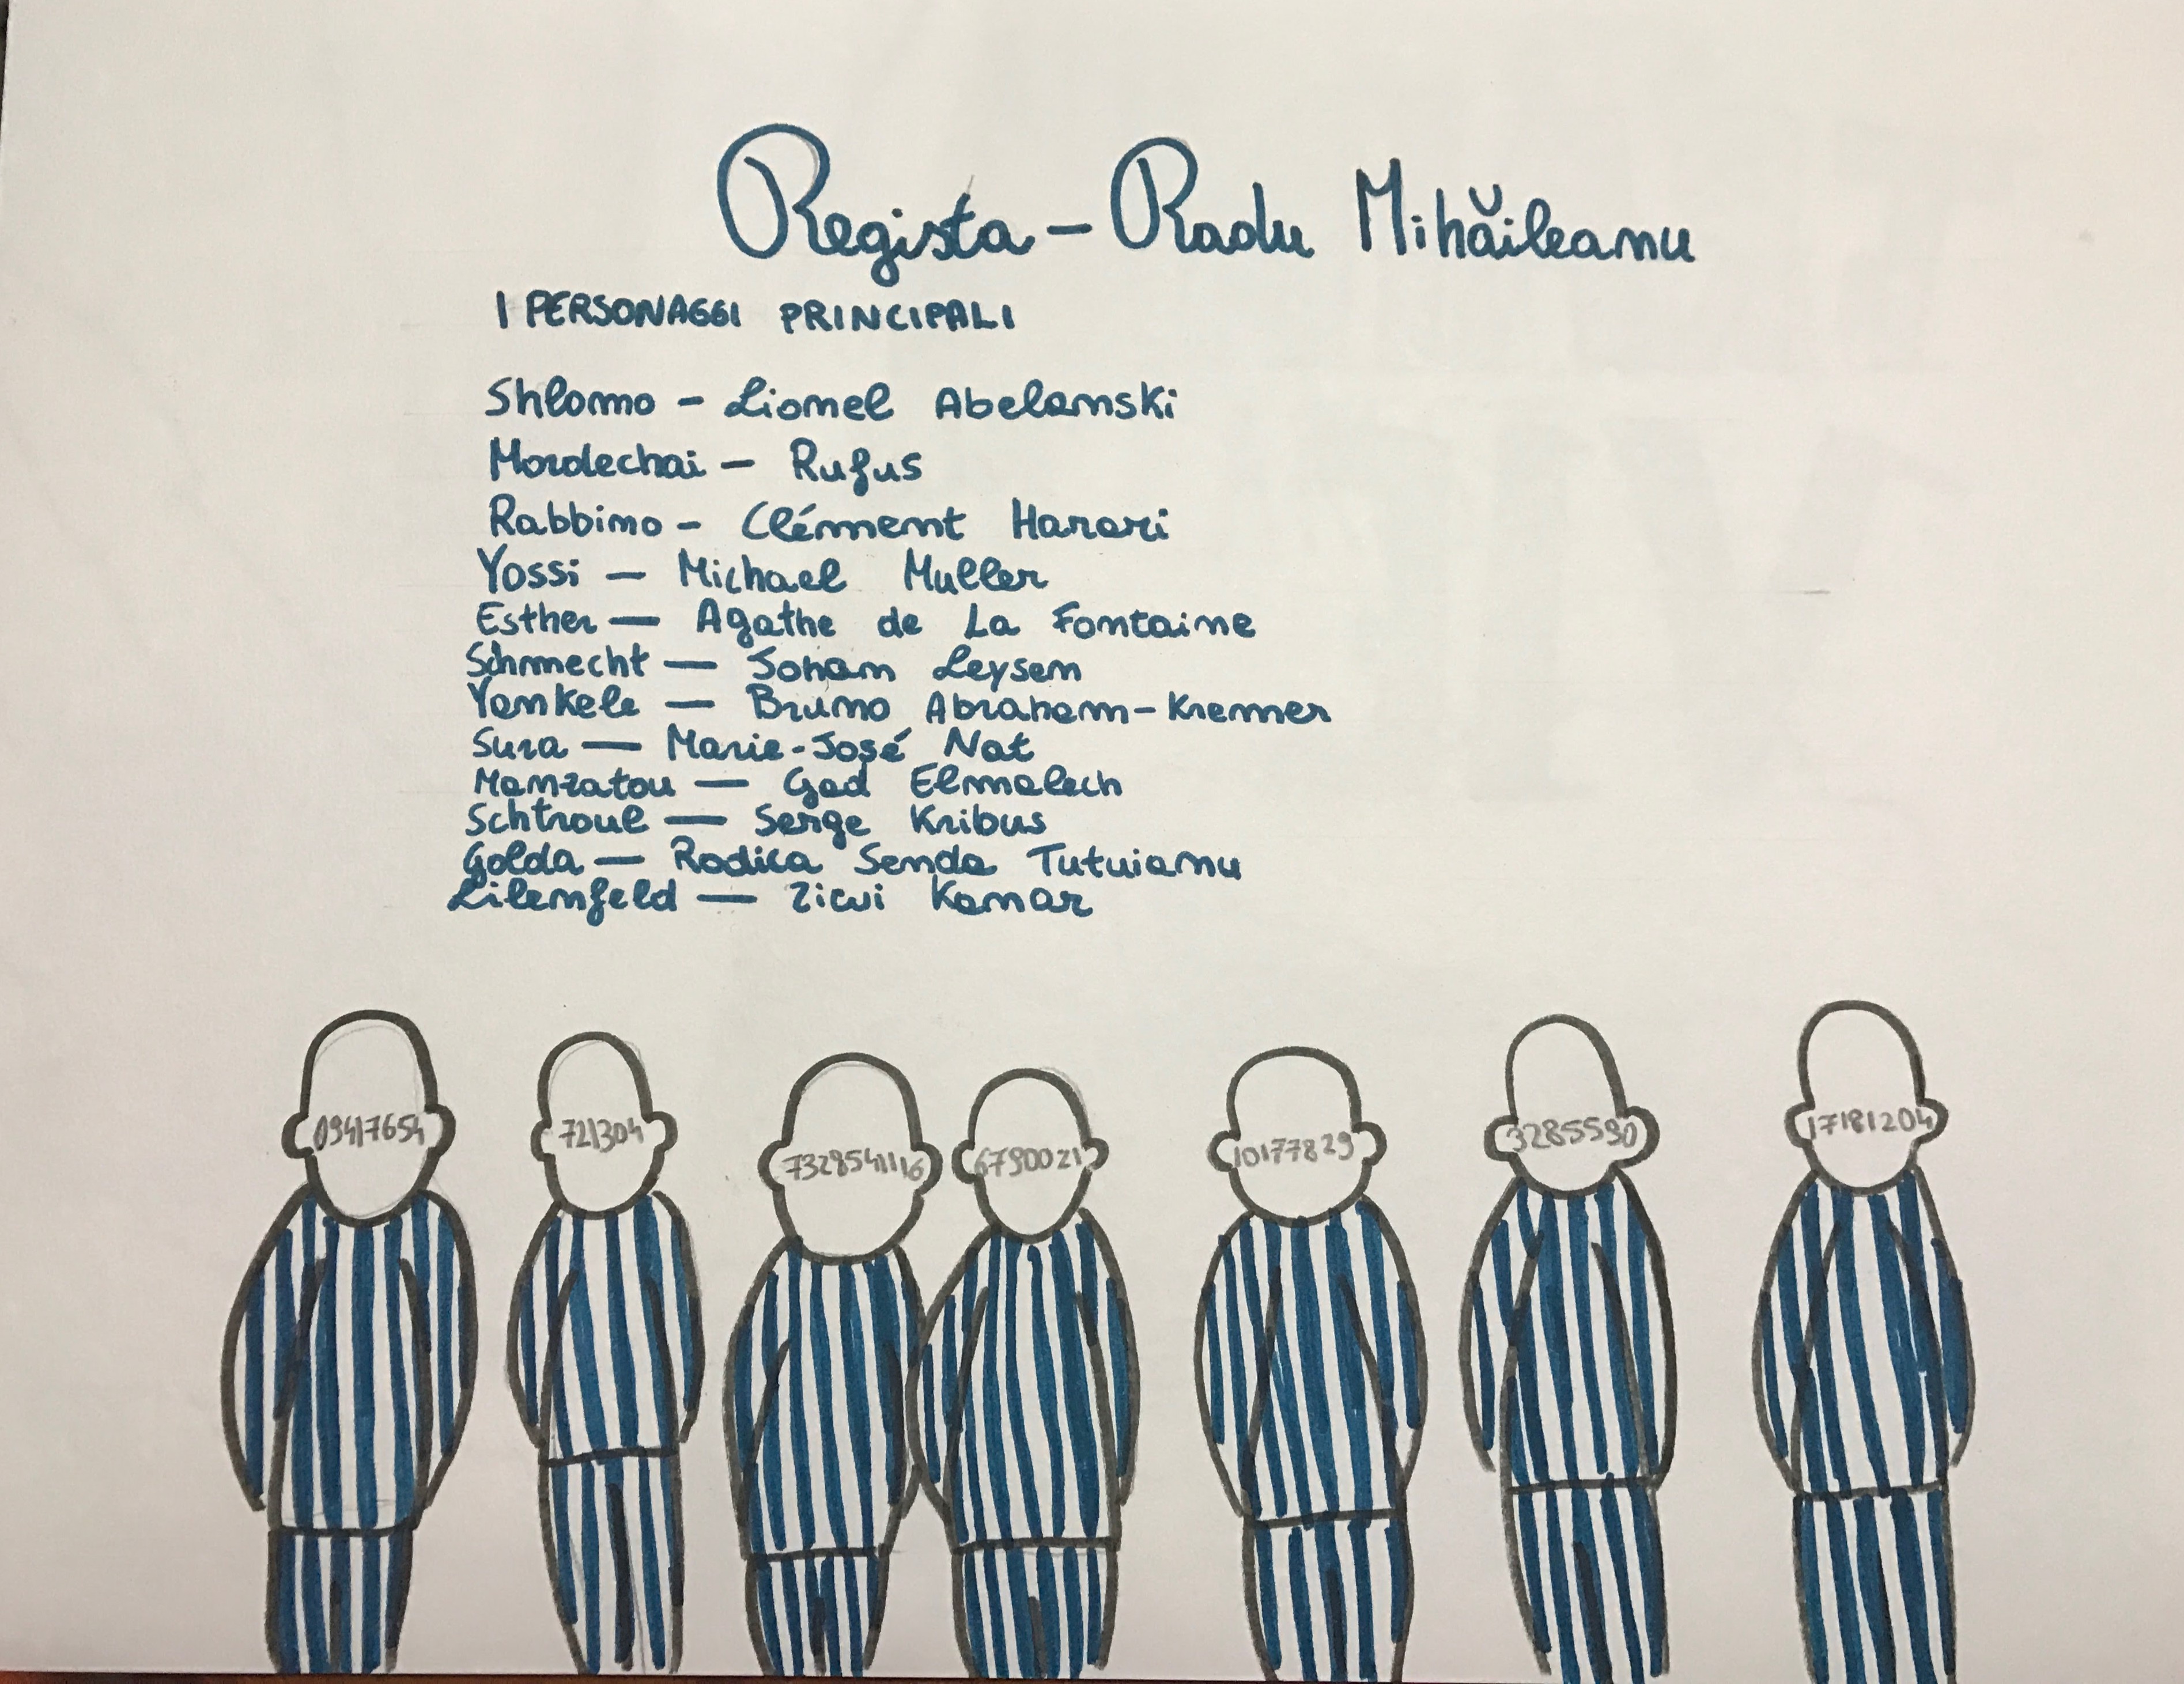 Regista - Radu Mihăileanu
I PERSONAGGI PRINCIPALI
Shlomo - Lionel Abelanski
Mordechai - Rufus
Rabbino - Clément Harari
Yossi - Michael Muller
Esther - Agathe de La Fontaine
Schmecht - Johan Leysen
Yankele - Bruno Abraham-Kremer
Sura - Marie-José Nat
Manzatou - Gad Elmalech
Schtroul - Serge Kribus
Golda - Rodica Senda Tutuianu
Lilenfeld - Zicvi Kanar
09417654 721304 7328541116 6790021 10177829 3285590 17181204